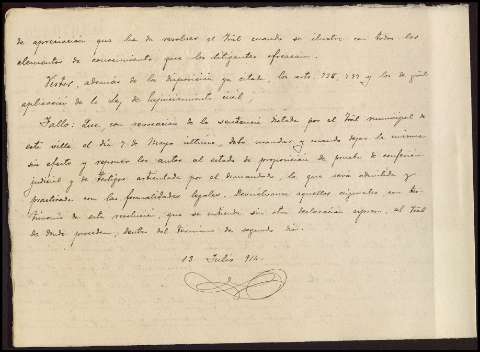 de apreciación que ha de resolver el Tral cuando se ilustre con todos los
elementos de conocimiento que los litigantes ofrezcan.
Vistos, además de la disposición ya citada, los arts. y los de gral
aplicación de la Ley de Enjuiciamiento civil,
Fallo: Que, con revocación de la sentencia dictada por el Tral municipal de
esta villa el día 7 de Mayo último, debo mandar y mando dejar la misma
sin efecto y reponer los autos al estado de proposición de prueba de confesión
judicial y de testigos articulada por el demandado, la que será admitida y
practicada con las formalidades legales. Devuélvanse aquellos originales con
de esta resolución, que se entiende sin otra declaración expresa, al Tral
de donde proceden, dentro del término de segundo día.
13 Julio 914.